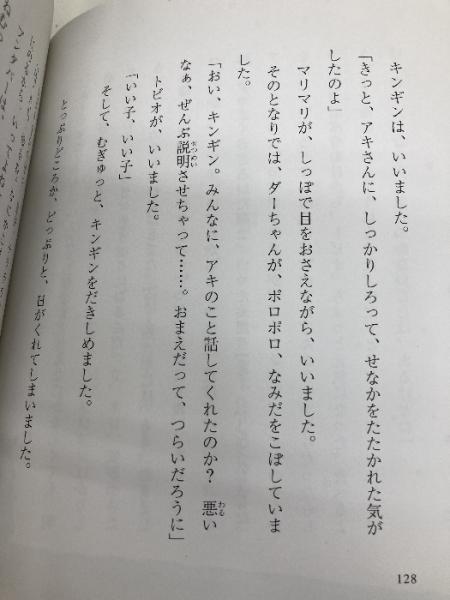 キンギンは、いいました。
「きっと、アキさんに、しっかりしろって、せなかをたたかれた気が
したのよ」
マリマリが、しっぽで目をおさえながら、いいました。
そのとなりでは、ダーちゃんが、ポロポロ、なみだをこぼしていま
した。
「おい、キンギン。みんなに、アキのこと話してくれたのか？　悪い
なぁ、ぜんぶ説明させちゃって……。おまえだって、つらいだろうに」
トビオが、いいました。
「いい子、いい子」
そして、むぎゅっと、キンギンをだきしめました。
とっぷりどころか、どっぷりと、日がくれてしまいました。
128